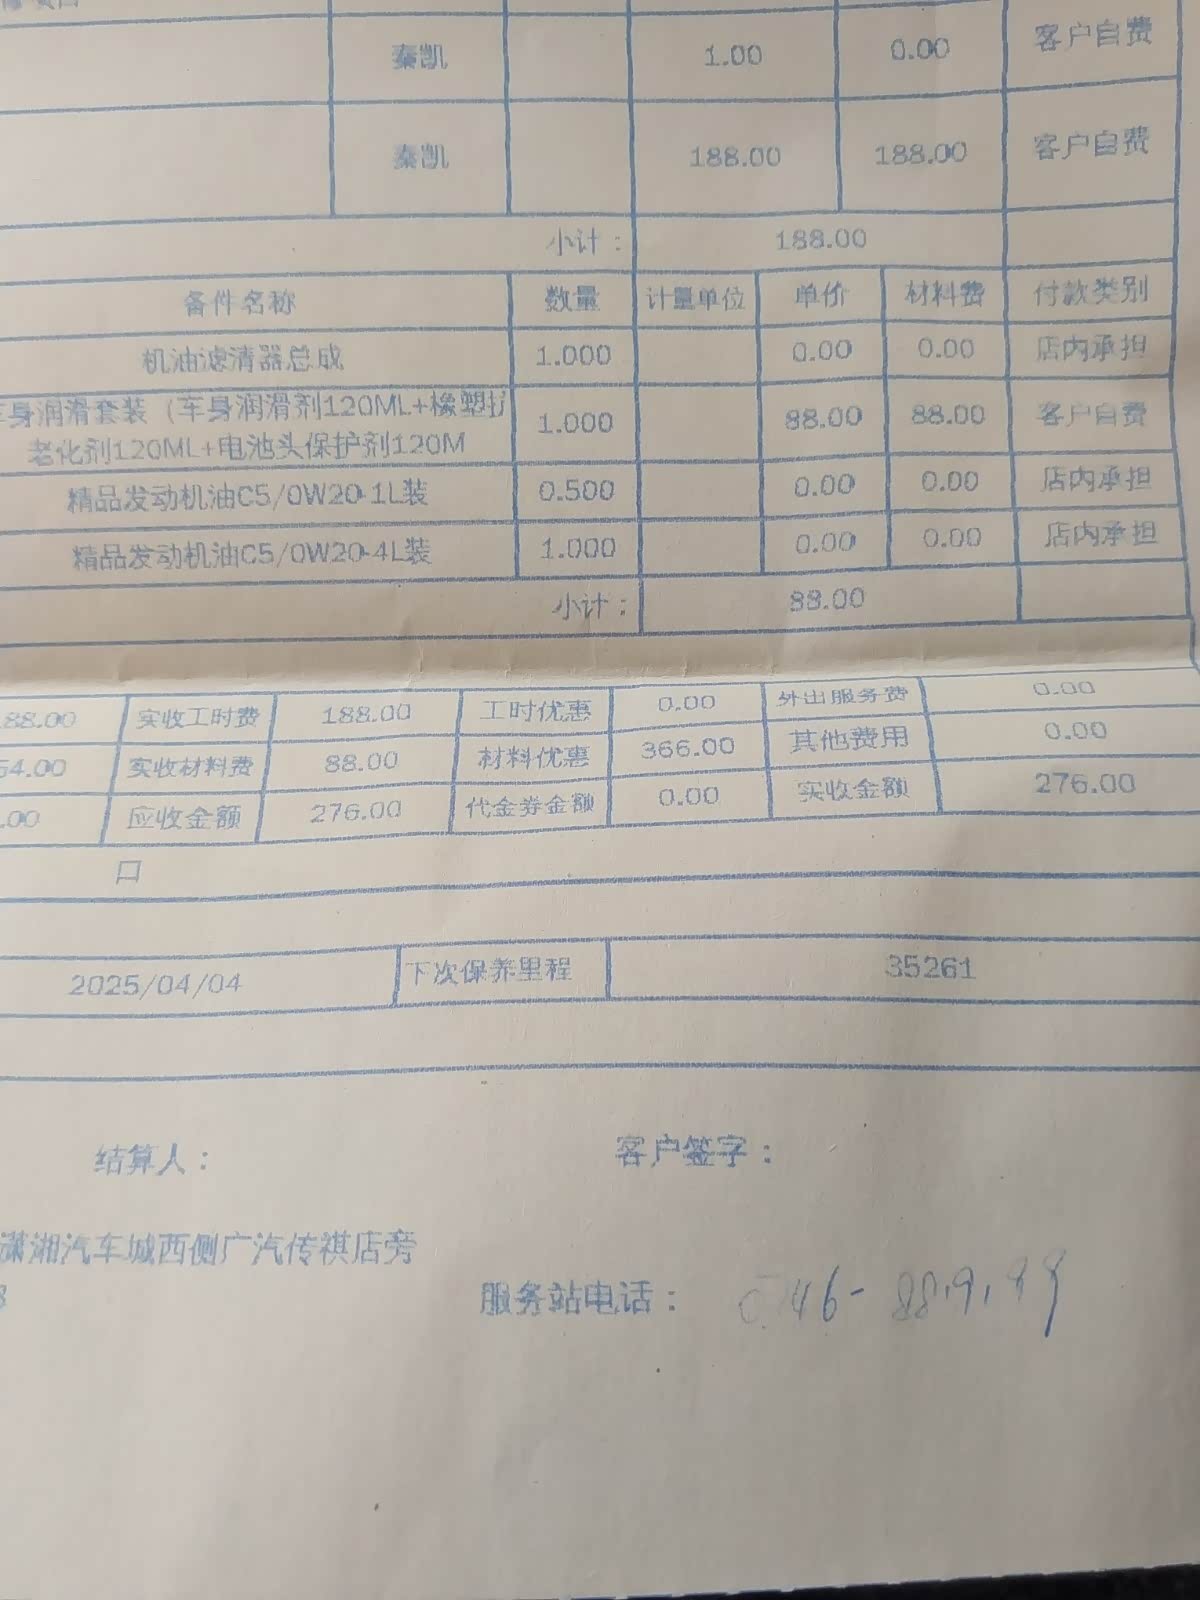 秦凯 1.00 0.00 客户自费
秦凯 188.00 188.00 客户自费
小计： 188.00
备件名称 数量 计量单位 单价 材料费 付款类别
机油滤清器总成 1.000 0.00 0.00 店内承担
车身润滑套装（车身润滑剂120ML+橡塑护
老化剂120ML+电池头保护剂120M 1.000 88.00 88.00 客户自费
精品发动机油C5/0W20-1L装 0.500 0.00 0.00 店内承担
精品发动机油C5/0W20-4L装 1.000 0.00 0.00 店内承担
小计： 88.00
88.00 实收工时费 188.00 工时优惠 0.00 外出服务费 0.00
54.00 实收材料费 88.00 材料优惠 366.00 其他费用 0.00
.00 应收金额 276.00 代金券金额 0.00 实收金额 276.00
口
2025/04/04 下次保养里程 35261
结算人： 客户签字：
潇湘汽车城西侧广汽传祺店旁
服务站电话：